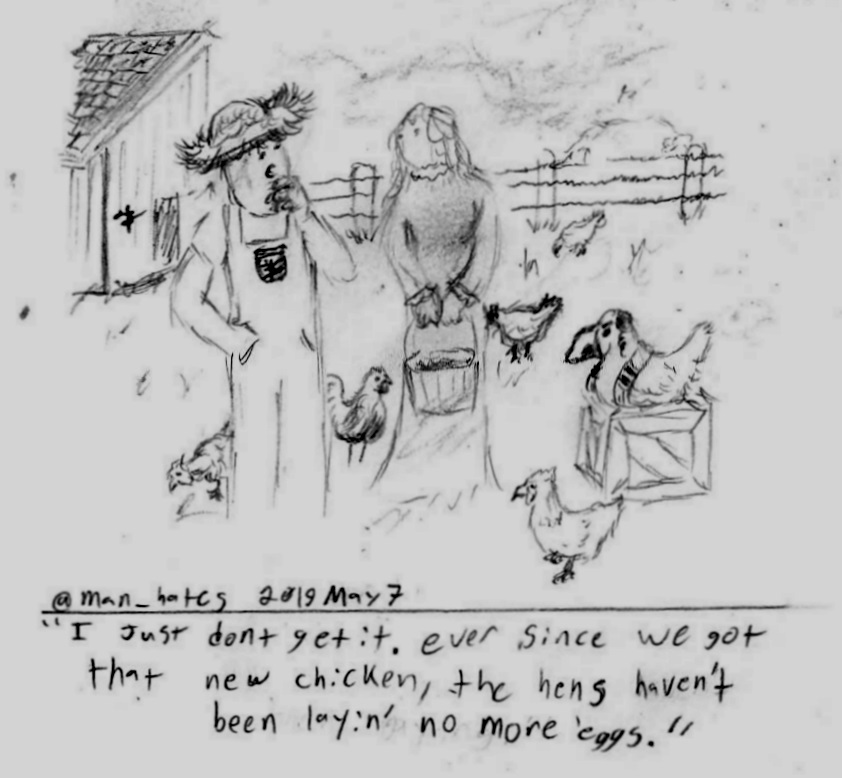 @man_hates 2019 May 7
"I Just dont get it. ever since we got
that new chicken, the hens haven't
been layin' no more eggs."